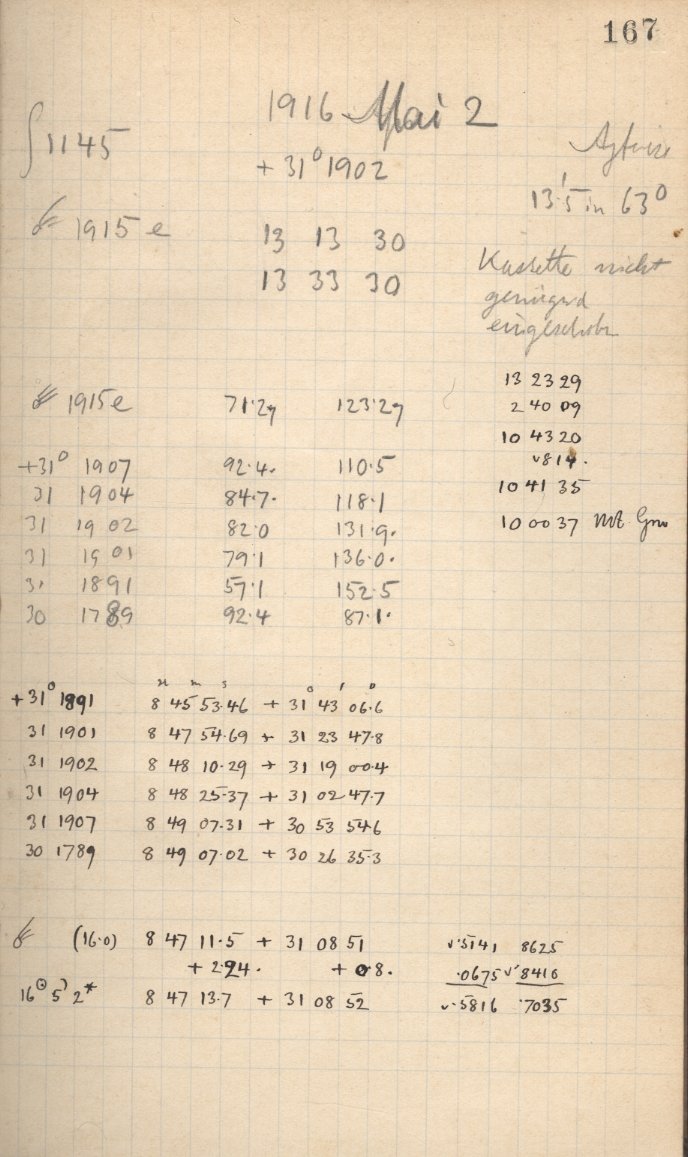 167
1916 Mai 2
1145
+ 31° 1902
13'.5 in 63°
1915 e
13 13 30
13 33 30
Kassette nicht
genügend
eingeschob
1915 e 71.27 123.27
+31° 1907 92.4. 110.5
31 1904 84.7. 118.1
31 1902 82.0 131.9.
31 1901 79.1 136.0.
31 1891 57.1 152.5
30 1789 92.4 87.1.
13 23 29
2 40 09
10 43 20
v814.
10 41 35
10 00 37 Mt
H m s ° ' "
+31° 1891 8 45 53.46 + 31 43 06.6
31 1901 8 47 54.69 + 31 23 47.8
31 1902 8 48 10.29 + 31 19 00.4
31 1904 8 48 25.37 + 31 02 47.7
31 1907 8 49 07.31 + 30 53 54.6
30 1789 8 49 07.02 + 30 26 35.3
(16.0) 8 47 11.5 + 31 08 51
+ 2.24. + 0.8.
16 5 2* 8 47 13.7 + 31 08 52
v.5141 8625
.0675 v8410
v.5816 .7035